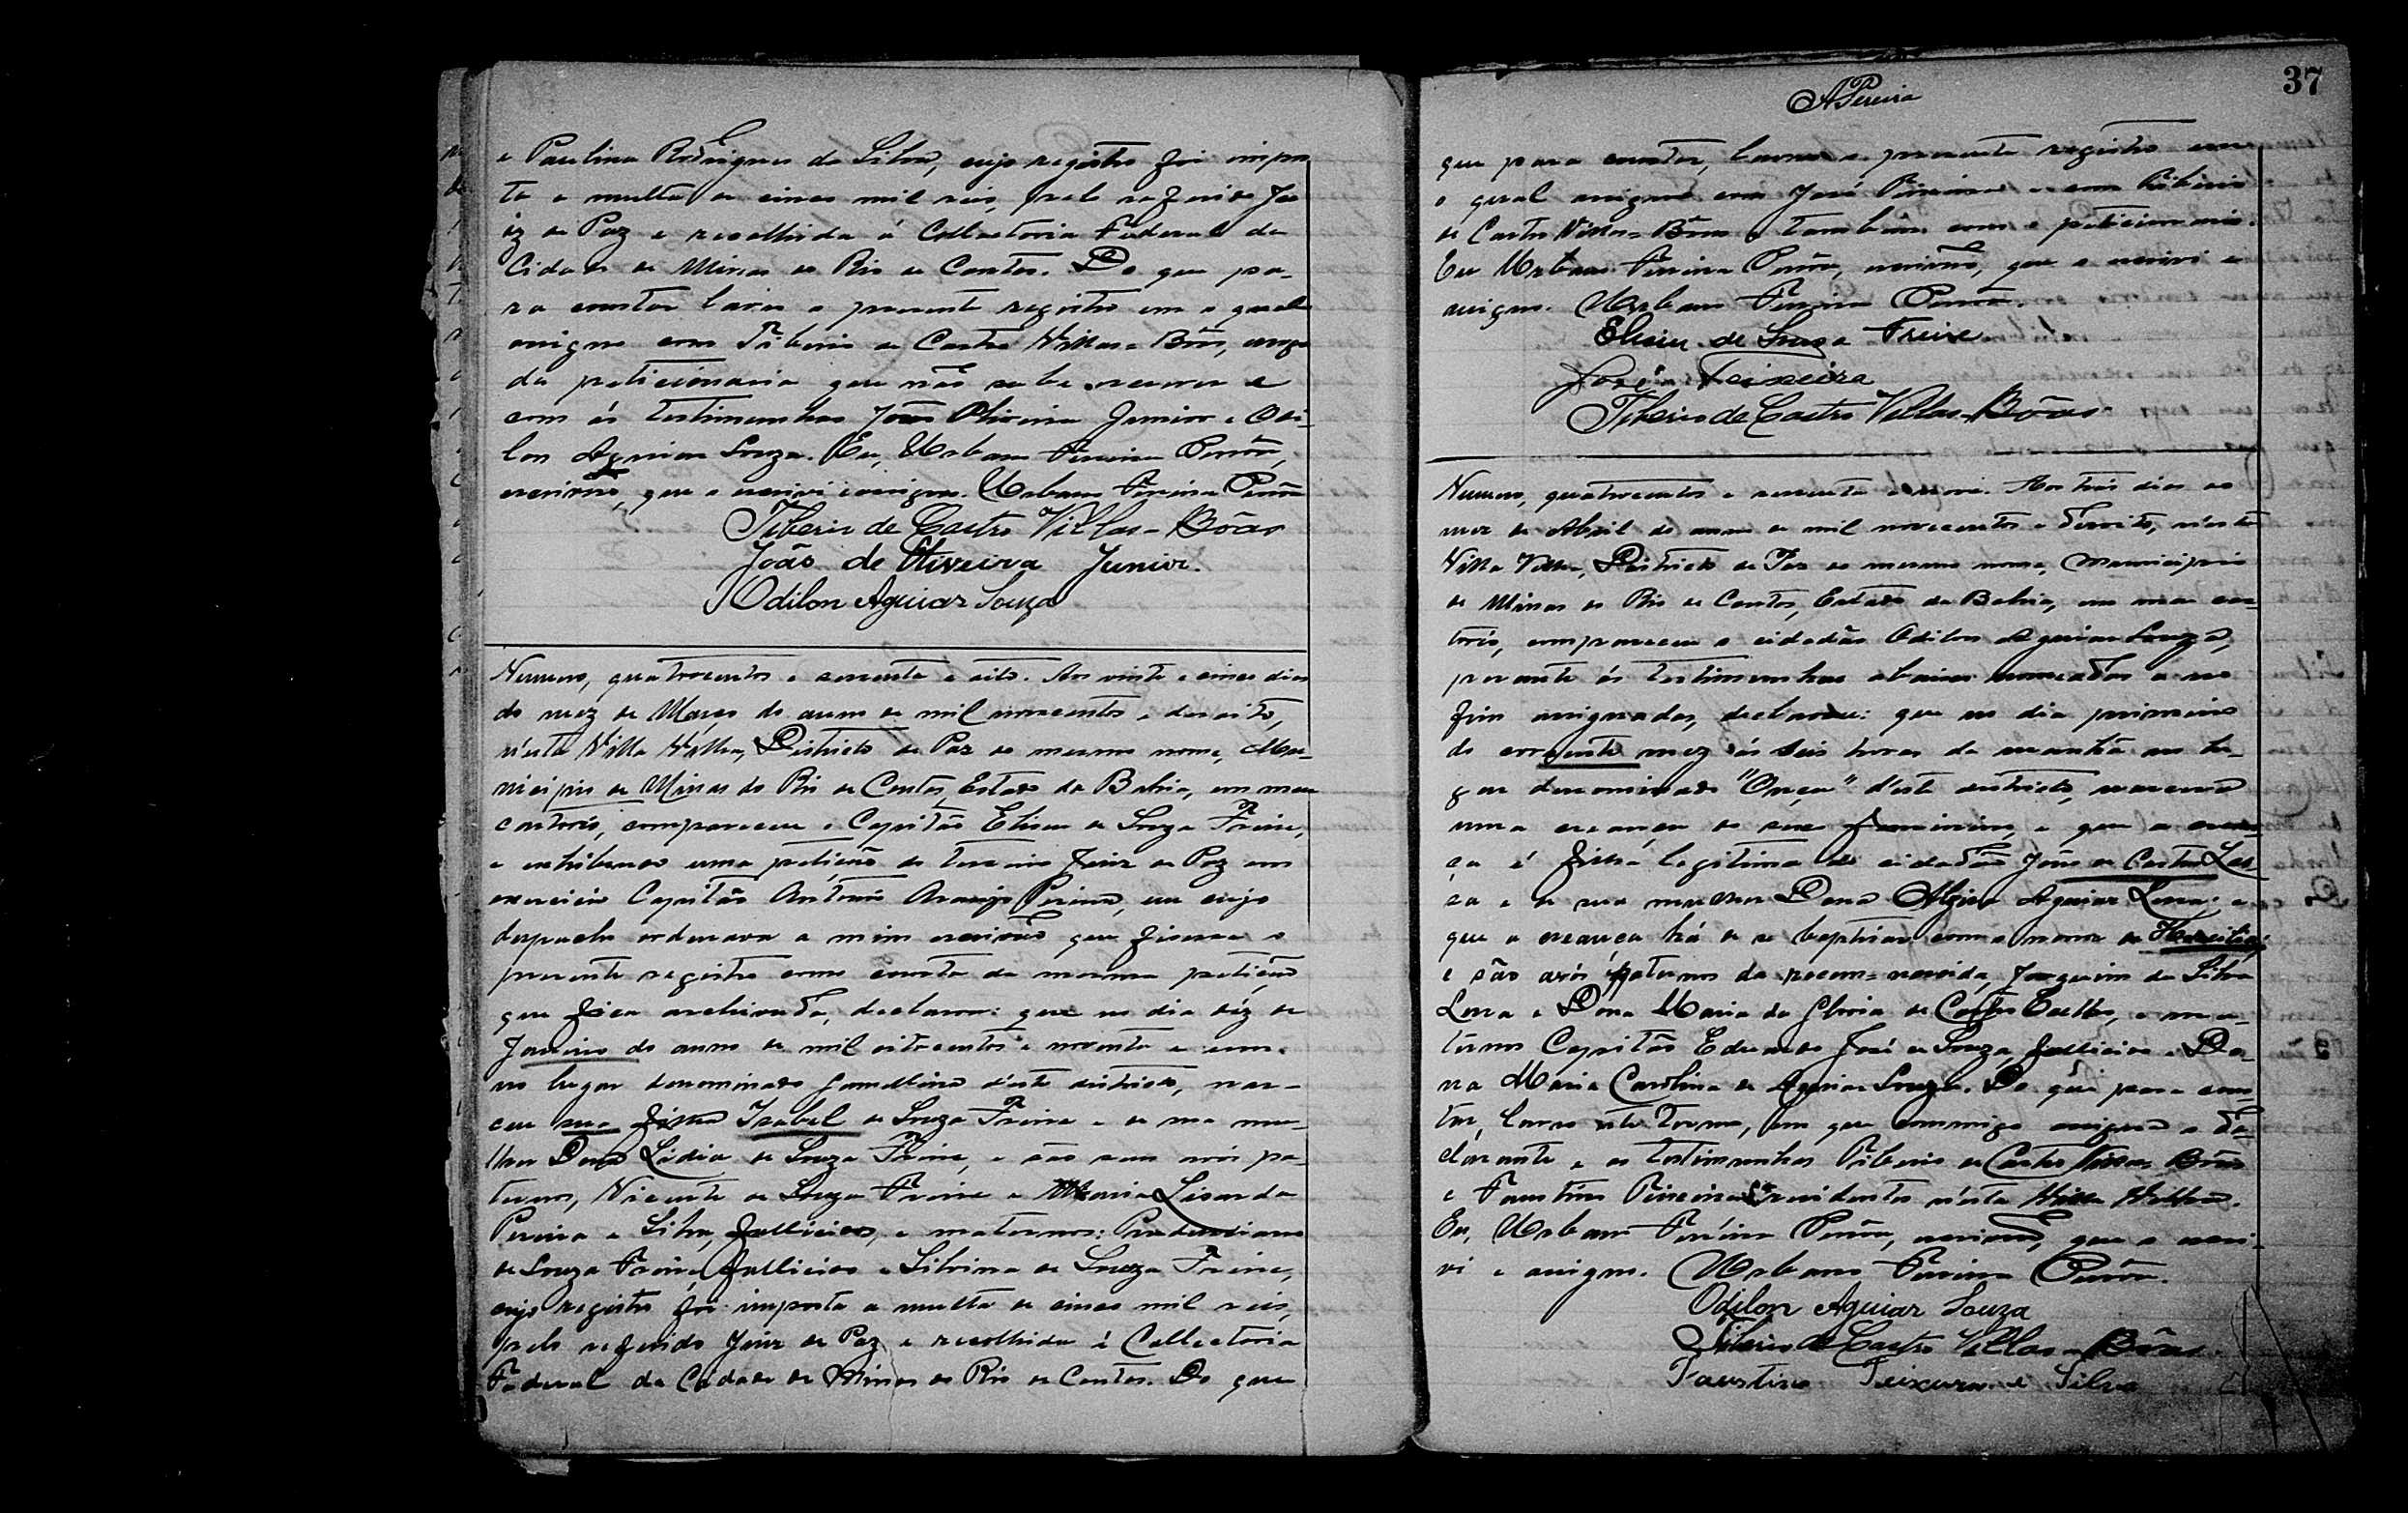 e Paulina Rodrigues da Silva, cujo registro foi impos
ta a multa de cinco mil reis, pelo referido Ju
iz de Paz e recolhida á Collectoria Federal da
Cidade de Minas do Rio de Contas. Do que pa-
ra constar lavro o presente registro em o qual
assigno com Tiberio de Castro Villas-Bôas, arogo
da peticionaria que não sabe escrever e
com ás testimunhas João Oliveira Junior e Odi-
lon Aguiar Souza. Eu, Urbano Pereira
escrivão, que o escrivi e assigno. Urbano
Tiberio de Castro Villas-Bôas
João de Oliveira Junior.
Odilon Aguiar Souza
Numero, quatrocentos e sessenta e oito. Aos vinte e cinco dias
do mez de Março do anno de mil novecentos e desoito,
n'esta Villa Velha, Districto de Paz do mesmo nome, Mu-
nicipio de Minas do Rio de Contas, Estado da Bahia, em meu
cartorio, compareceu o Capitão Eliseu de Souza Freire,
e exhibendo uma petição do terceiro Juiz de Paz em
exercicio Capitão Antonio Araujo Pereira, em cujo
despacho ordenava a mim escrivão que fisesse o
presente registro como consta da mesma petição
que fica archivada, declarou: que no dia déz de
Janeiro do anno de mil oitocentos e noventa e um.
no lugar denominado Gamelleira d'este districto, nas-
ceu sua filha Izabel de Souza Freire e de sua mu-
lher Dona Lidia de Souza Freire, e são seus avós pa-
ternos, Vicente de Souza Freire e Maria Lisarda
Pereira e Silva, fallicidos, e maternos: Prudenciano
de Souza Freire, fallicido e Silvina de Souza Freire,
cujo registro foi imposta a multa de cinco mil reis,
pelo referido Juiz de Paz e recolhida á Collectoria
Federal da Cidade de Minas do Rio de Contas. Do que
37
APereira
que para constar, lavro o presente registro em
o qual assigno com José Teixeira e com Tiberio
de Castro Villas-Bôas e tambem com o peticionario.
Eu Urbano escrivão, que o escrivi e
assigno. Urbano
Eliseu de Souza Freire.
José Teixeira
Tiberio de Castro Villas-Bôas-
Numero, quatrocentos e sessenta e nove. Aos trés dias do
mez de Abril do anno de mil novecentos e desoito, n'esta
Villa Velha, Districto de Paz do mesmo nome, Municipio
de Minas do Rio de Contas, Estado da Bahia, em meu car-
torio, compareceu o cidadão Odilon Aguiar Souza,
perante ás testimunhas abaixo nomeadas e no
fim assignadas, declarou: que no dia primeiro
do corrente mez ás seis horas da manhã no lu-
gar denominado "Onça" d'este districto, nasceu
uma creança do sexo feminino, e que a crean-
ça é filha legitima do cidadão João de Castro Les
sa e de sua mulher Dona Algisa Aguiar Lessa: e
que a creança há de se baptisar com o nome de Hercilia;
e são avós paternos da recem-nascida, Joaquim da Silva
Lessa e Dona Maria da Gloria de Castro Coelho, e ma-
ternos Capitão Eduardo José de Souza, fallicido e Do-
na Maria Carolina de Aguiar Souza. Do que para cons-
tar, lavro este termo, em que commigo assigna o de-
clarante e as testimunhas Tiberio de Castro Villas Bôas
e Faustino Teixeira residentes n'esta Villa Velha.
Eu, Urbano escrivão, que o escri-
vi e assigno. Urbano
Odilon Aguiar Souza
Tiberio de Castro Villas-Bôas.
Faustino Teixeira e Silva